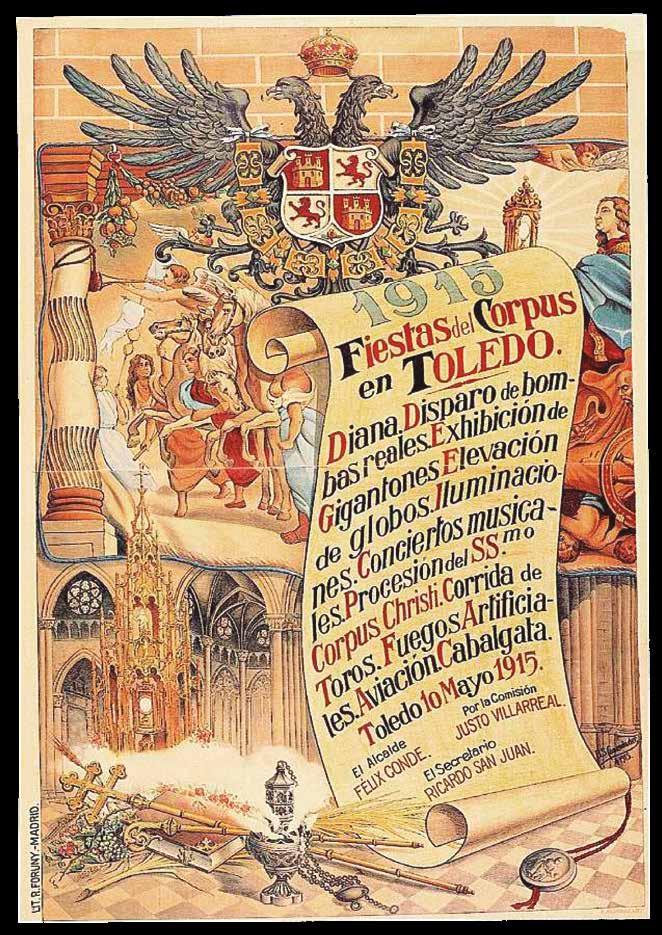 1915
Fiestas del Corpus
en TOLEDO.
Diana. Disparo de bom-
bas reales. Exhibición de
Gigantones. Elevación
de globos. Iluminacio-
nes. Conciertos musica-
les. Procesión del SS.mo
Corpus Christi. Corrida de
Toros. Fuegos Artificia-
les. Aviación. Cabalgata.
Toledo 10 Mayo 1915.
Por la Comisión
JUSTO VILLARREAL.
El Alcalde
FELIX CONDE.
El Secretario
RICARDO SAN JUAN.
LIT. R. FORUNY.-MADRID.